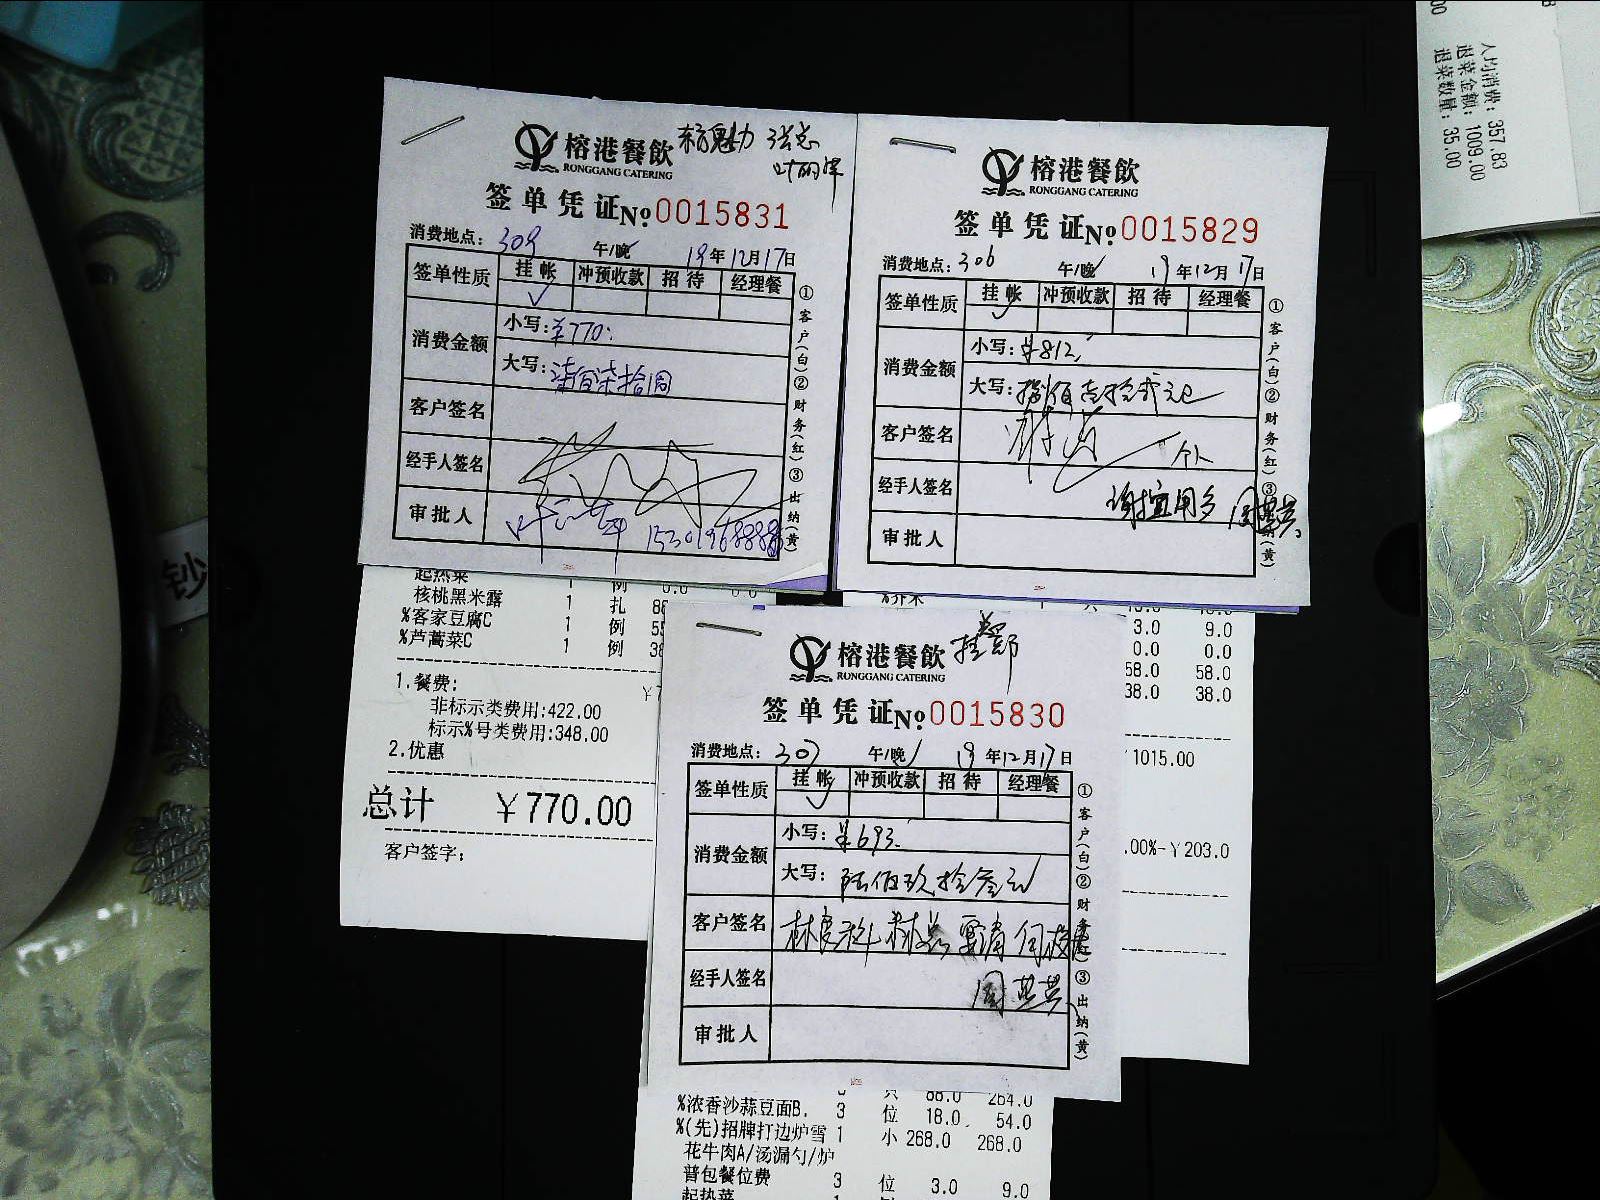 人均消费: 357.83
退菜金额: 1009.00
退菜数量: 35.00
榕港餐飲
东方魅力 张总
RONGGANG CATERING
签单凭证 No 0015831
消费地点: 309 午/晚 19年12月17日
签单性质 挂帐 冲预收款 招待 经理餐
✓
消费金额 小写: ¥770:
大写: 柒佰柒拾圆
客户签名
经手人签名
审批人
15301968888
①客户(白)②财务(红)③出纳(黄)
榕港餐飲
RONGGANG CATERING
签单凭证 No 0015829
消费地点: 306 午/晚 19年12月17日
签单性质 挂帐 冲预收款 招待 经理餐
✓
消费金额 小写: ¥812
大写: 捌佰壹拾贰元
客户签名
经手人签名
审批人
①客户(白)②财务(红)③出纳(黄)
起热菜 1 例 0.0 0.0
核桃黑米露 1 扎 88
%客家豆腐C 1 例 55
%芦蒿菜C 1 例 38
1.餐费: ¥7
非标示类费用:422.00
标示%号类费用:348.00
2.优惠
总计 ¥770.00
客户签字;
3.0 9.0
0.0 0.0
58.0 58.0
38.0 38.0
1015.00
.00%-¥203.0
榕港餐飲
RONGGANG CATERING
签单凭证 No 0015830
消费地点: 307 午/晚 19年12月17日
签单性质 挂帐 冲预收款 招待 经理餐
✓
消费金额 小写: ¥693
大写: 陆佰玖拾叁元
客户签名
经手人签名 周燕英
审批人
①客户(白)②财务(红)③出纳(黄)
88.0 264.0
%浓香沙蒜豆面B. 3 位 18.0 54.0
%(先)招牌打边炉雪 1 小 268.0 268.0
花牛肉A/汤漏勺/炉
普包餐位费 3 位 3.0 9.0
起热菜